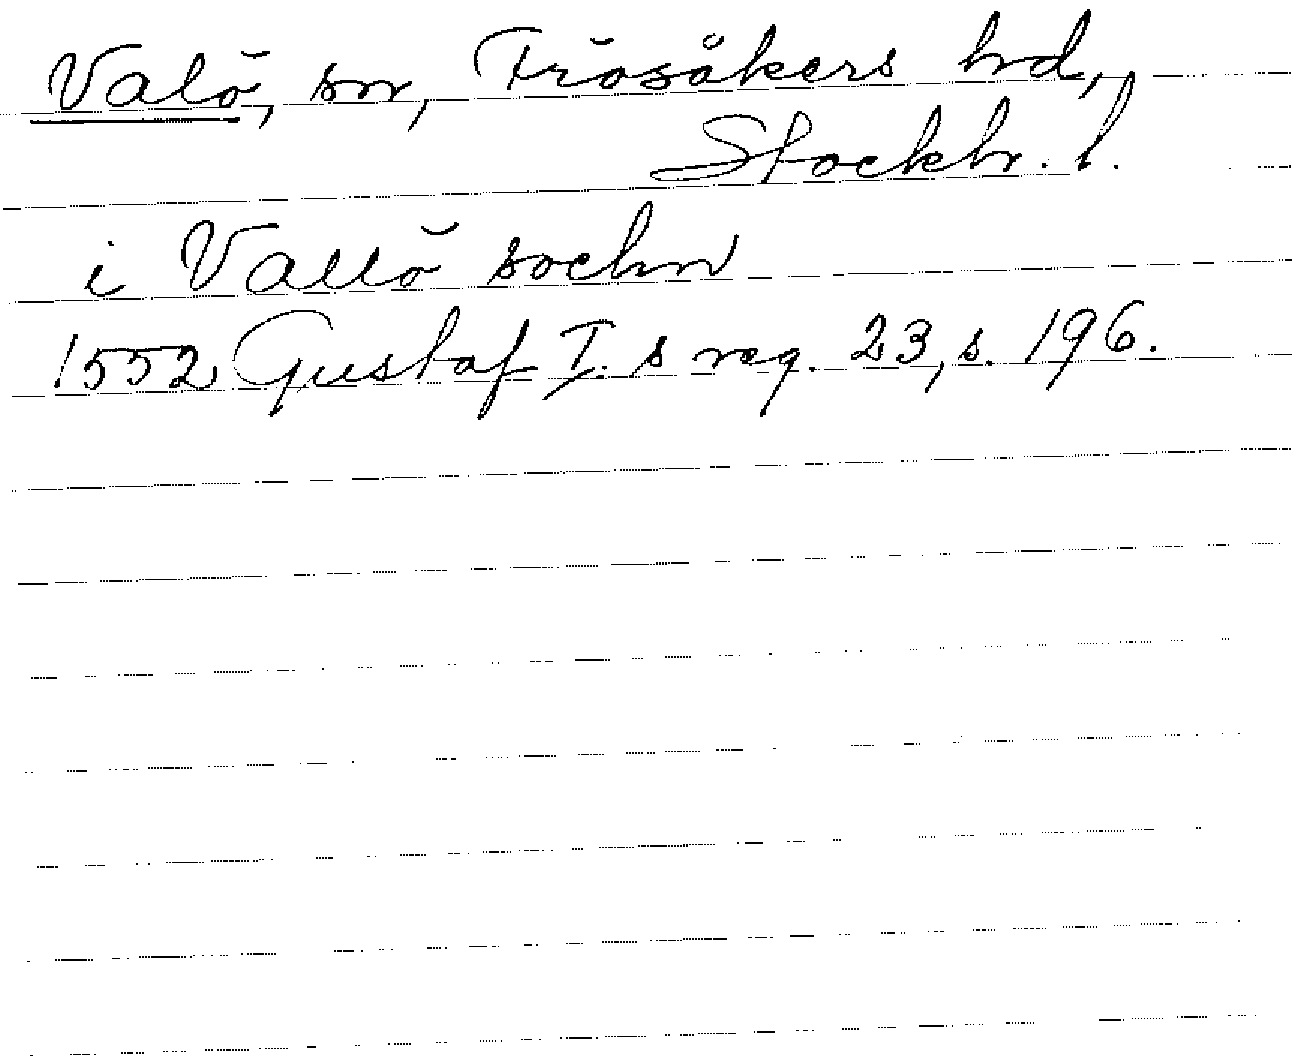 Valö, sn, Frösåkers hd,
Stockh. l.
i Vallö sochn
1552 Gustaf I:s reg. 23, s. 196.